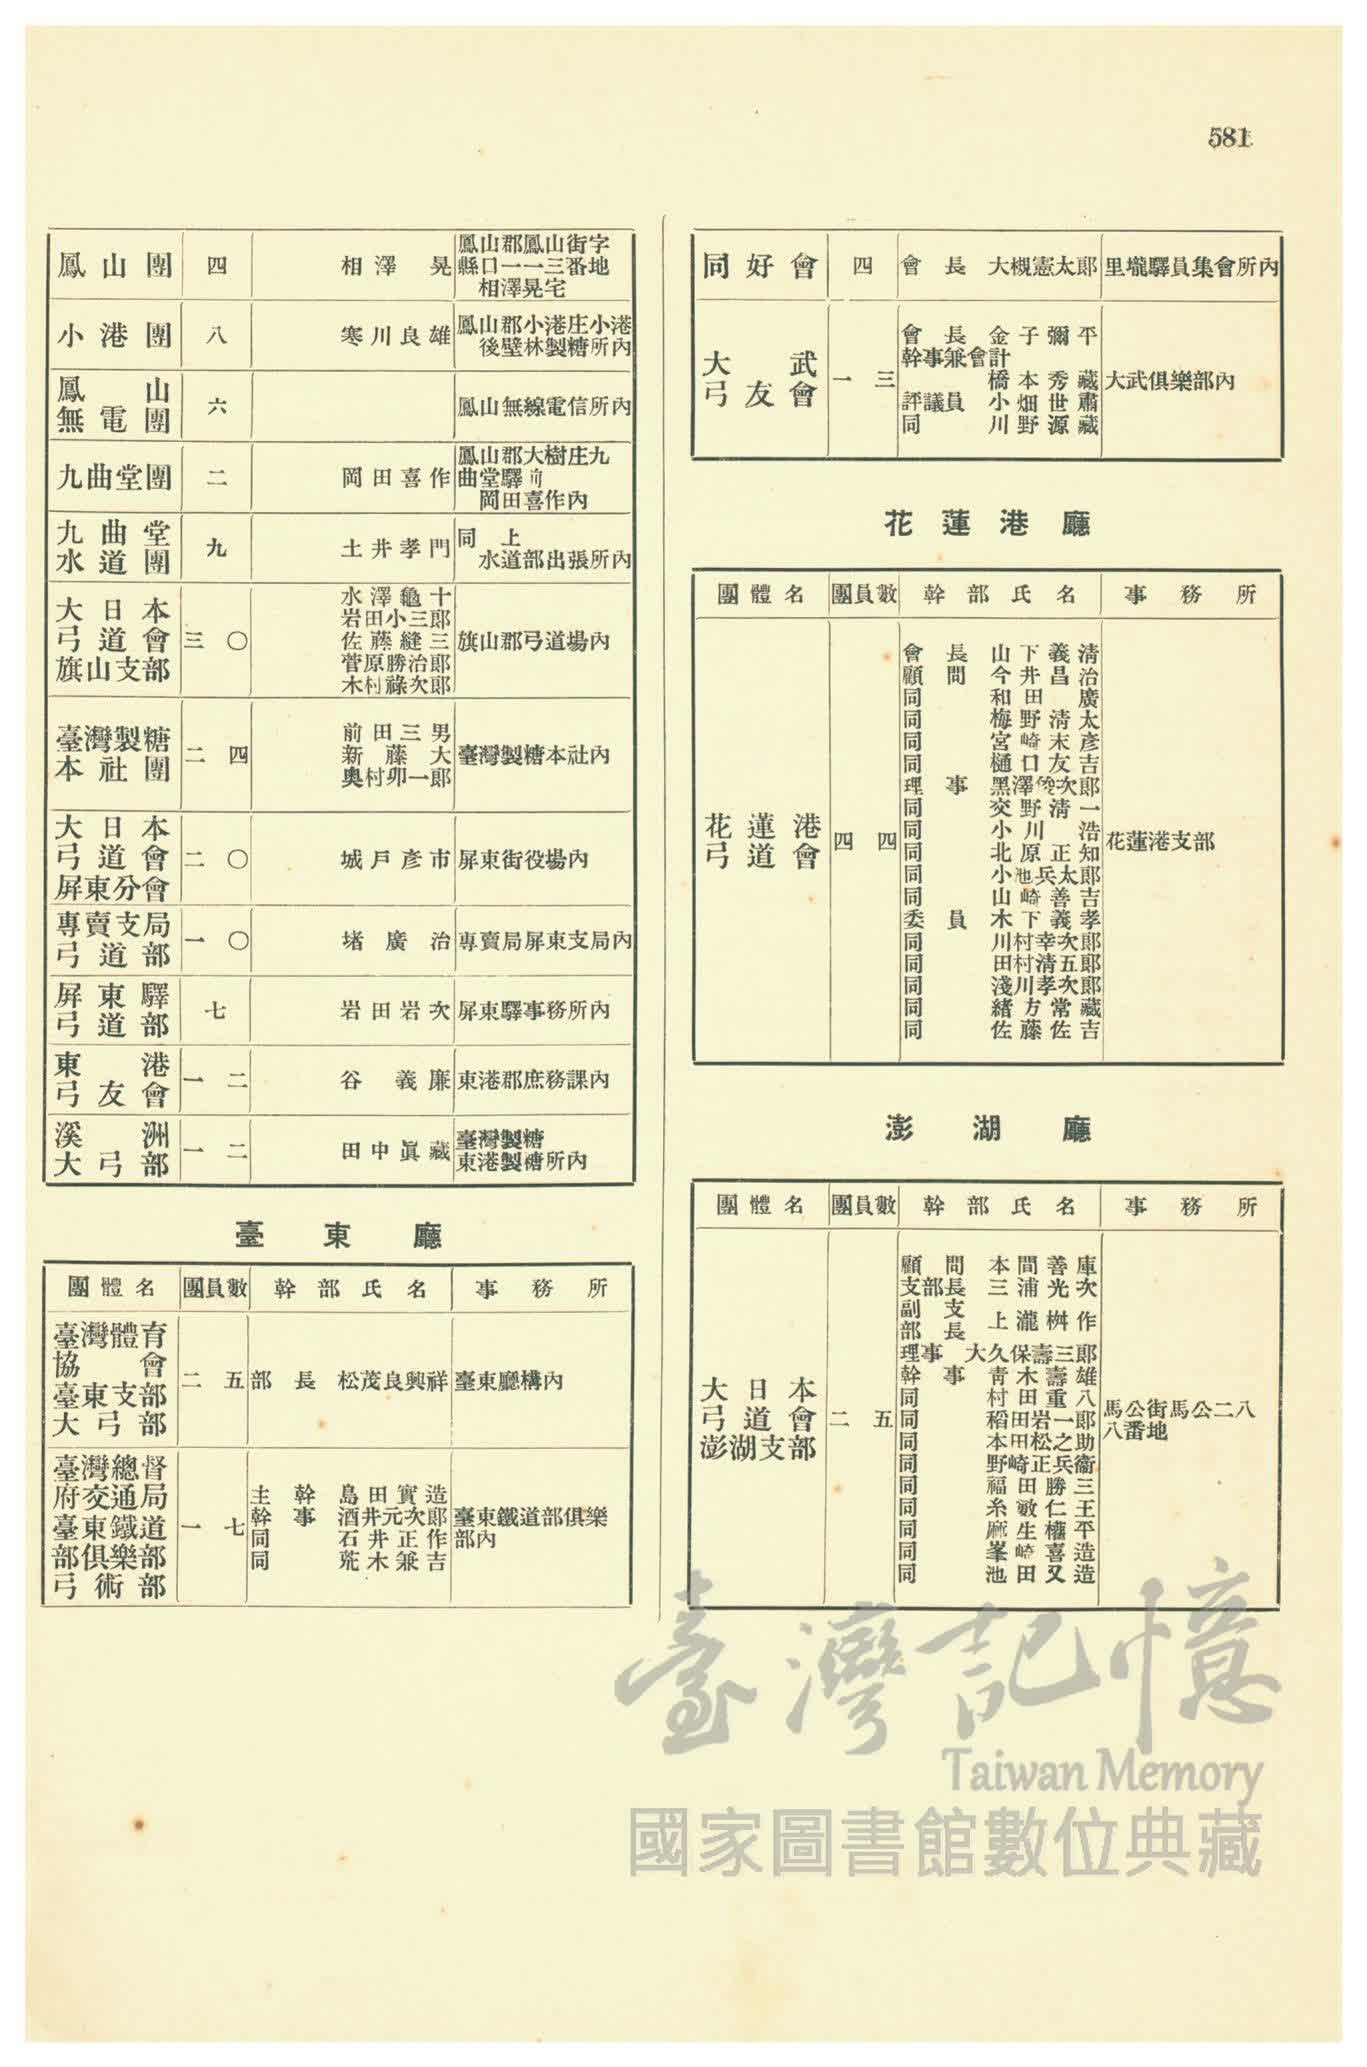 581
鳳山團 四 相澤晃 鳳山郡鳳山街字
縣口一一三番地
相澤晃宅
小港團 八 寒川良雄 鳳山郡小港庄小港
後壁林製糖所內
鳳山
無電團 六 鳳山無線電信所內
九曲堂團 二 岡田喜作 鳳山郡大樹庄九
曲堂驛前
岡田喜作內
九曲堂
水道團 九 土井孝門 同上
水道部出張所內
大日本
弓道會
旗山支部 三〇 水澤龜十
岩田小三郎
佐藤縫三
菅原勝治郎
木村祿次郎
旗山郡弓道場內
臺灣製糖
本社團 二四 前田三男
新藤大
奧村卯一郎
臺灣製糖本社內
大日本
弓道會
屏東分會 二〇 城戶彥市 屏東街役場內
專賣支局
弓道部 一〇 堵廣治 專賣局屏東支局內
屏東驛
弓道部 七 岩田岩次 屏東驛事務所內
東港
弓友會 一二 谷義廉 東港郡庶務課內
溪洲
大弓部 一二 田中眞藏 臺灣製糖
東港製糖所內
臺東廳
團體名 團員數 幹部氏名 事務所
臺灣體育
協會
臺東支部
大弓部 二五 部長 松茂良興祥 臺東廳構內
臺灣總督
府交通局
臺東鐵道
部俱樂部
弓術部 一七 主幹 島田實造
幹事 酒井元次郎
同 石井正作
同 荒木兼吉
臺東鐵道部俱樂
部內
同好會 四 會長 大槻憲太郎 里壠驛員集會所內
大武
弓友會 一三 會長 金子彌平
幹事兼會計
橋本秀藏
評議員 小畑世肅
同 川野源藏
大武俱樂部內
花蓮港廳
團體名 團員數 幹部氏名 事務所
花蓮港
弓道會 四四 會長 山下義清
顧問 今井昌治
同 和田廣
同 梅野清太
同 宮崎末彥
同 樋口友吉
理事 黑澤俊次郎
同 交野清一
同 小川浩
同 北原正知
同 小池兵太郎
同 山崎善吉
委員 木下義孝
同 川村幸次郎
同 田村清五郎
同 淺川孝次郎
同 緒方常藏
同 佐藤佐吉
花蓮港支部
澎湖廳
團體名 團員數 幹部氏名 事務所
大日本
弓道會
澎湖支部 二五 顧問 本間善庫
支部長 三浦光次
副支
部長 上瀧桝作
理事 大久保壽三郎
幹事 靑木壽雄
同 村田重八
同 稻田岩一郎
同 本田松之助
同 野崎正兵衞
同 福田勝三
同 糸數仁王
同 麻生權平
同 峯崎喜造
同 池田又造
馬公街馬公二八
八番地
臺灣記憶
Taiwan Memory
國家圖書館數位典藏